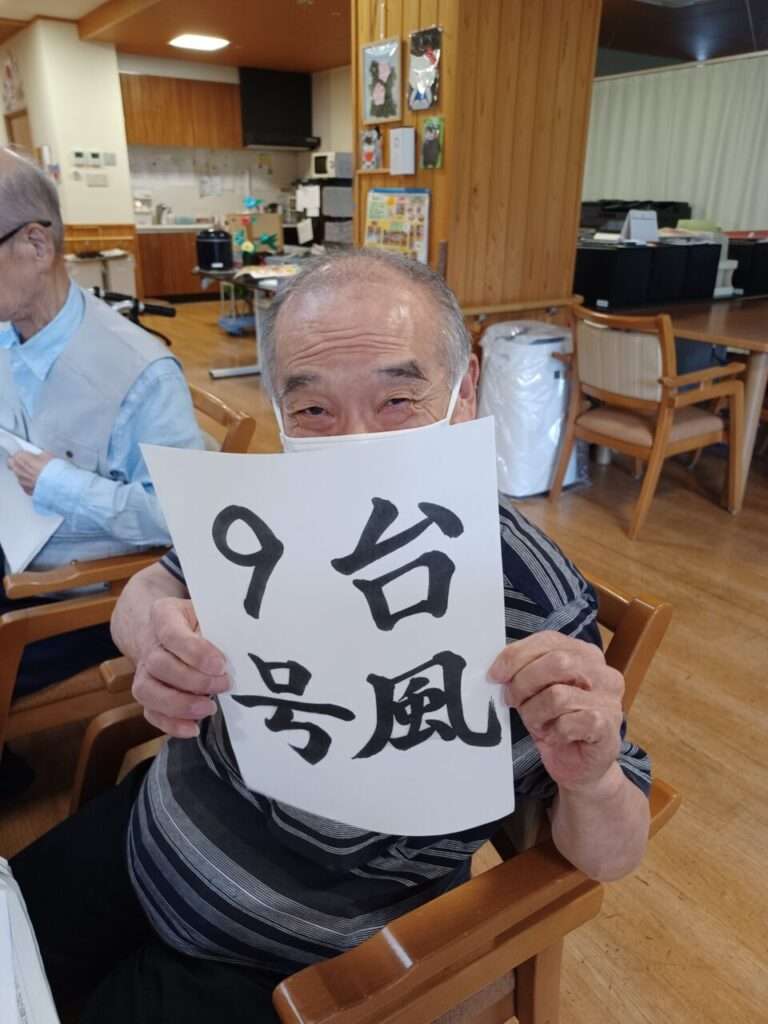 台風
9号